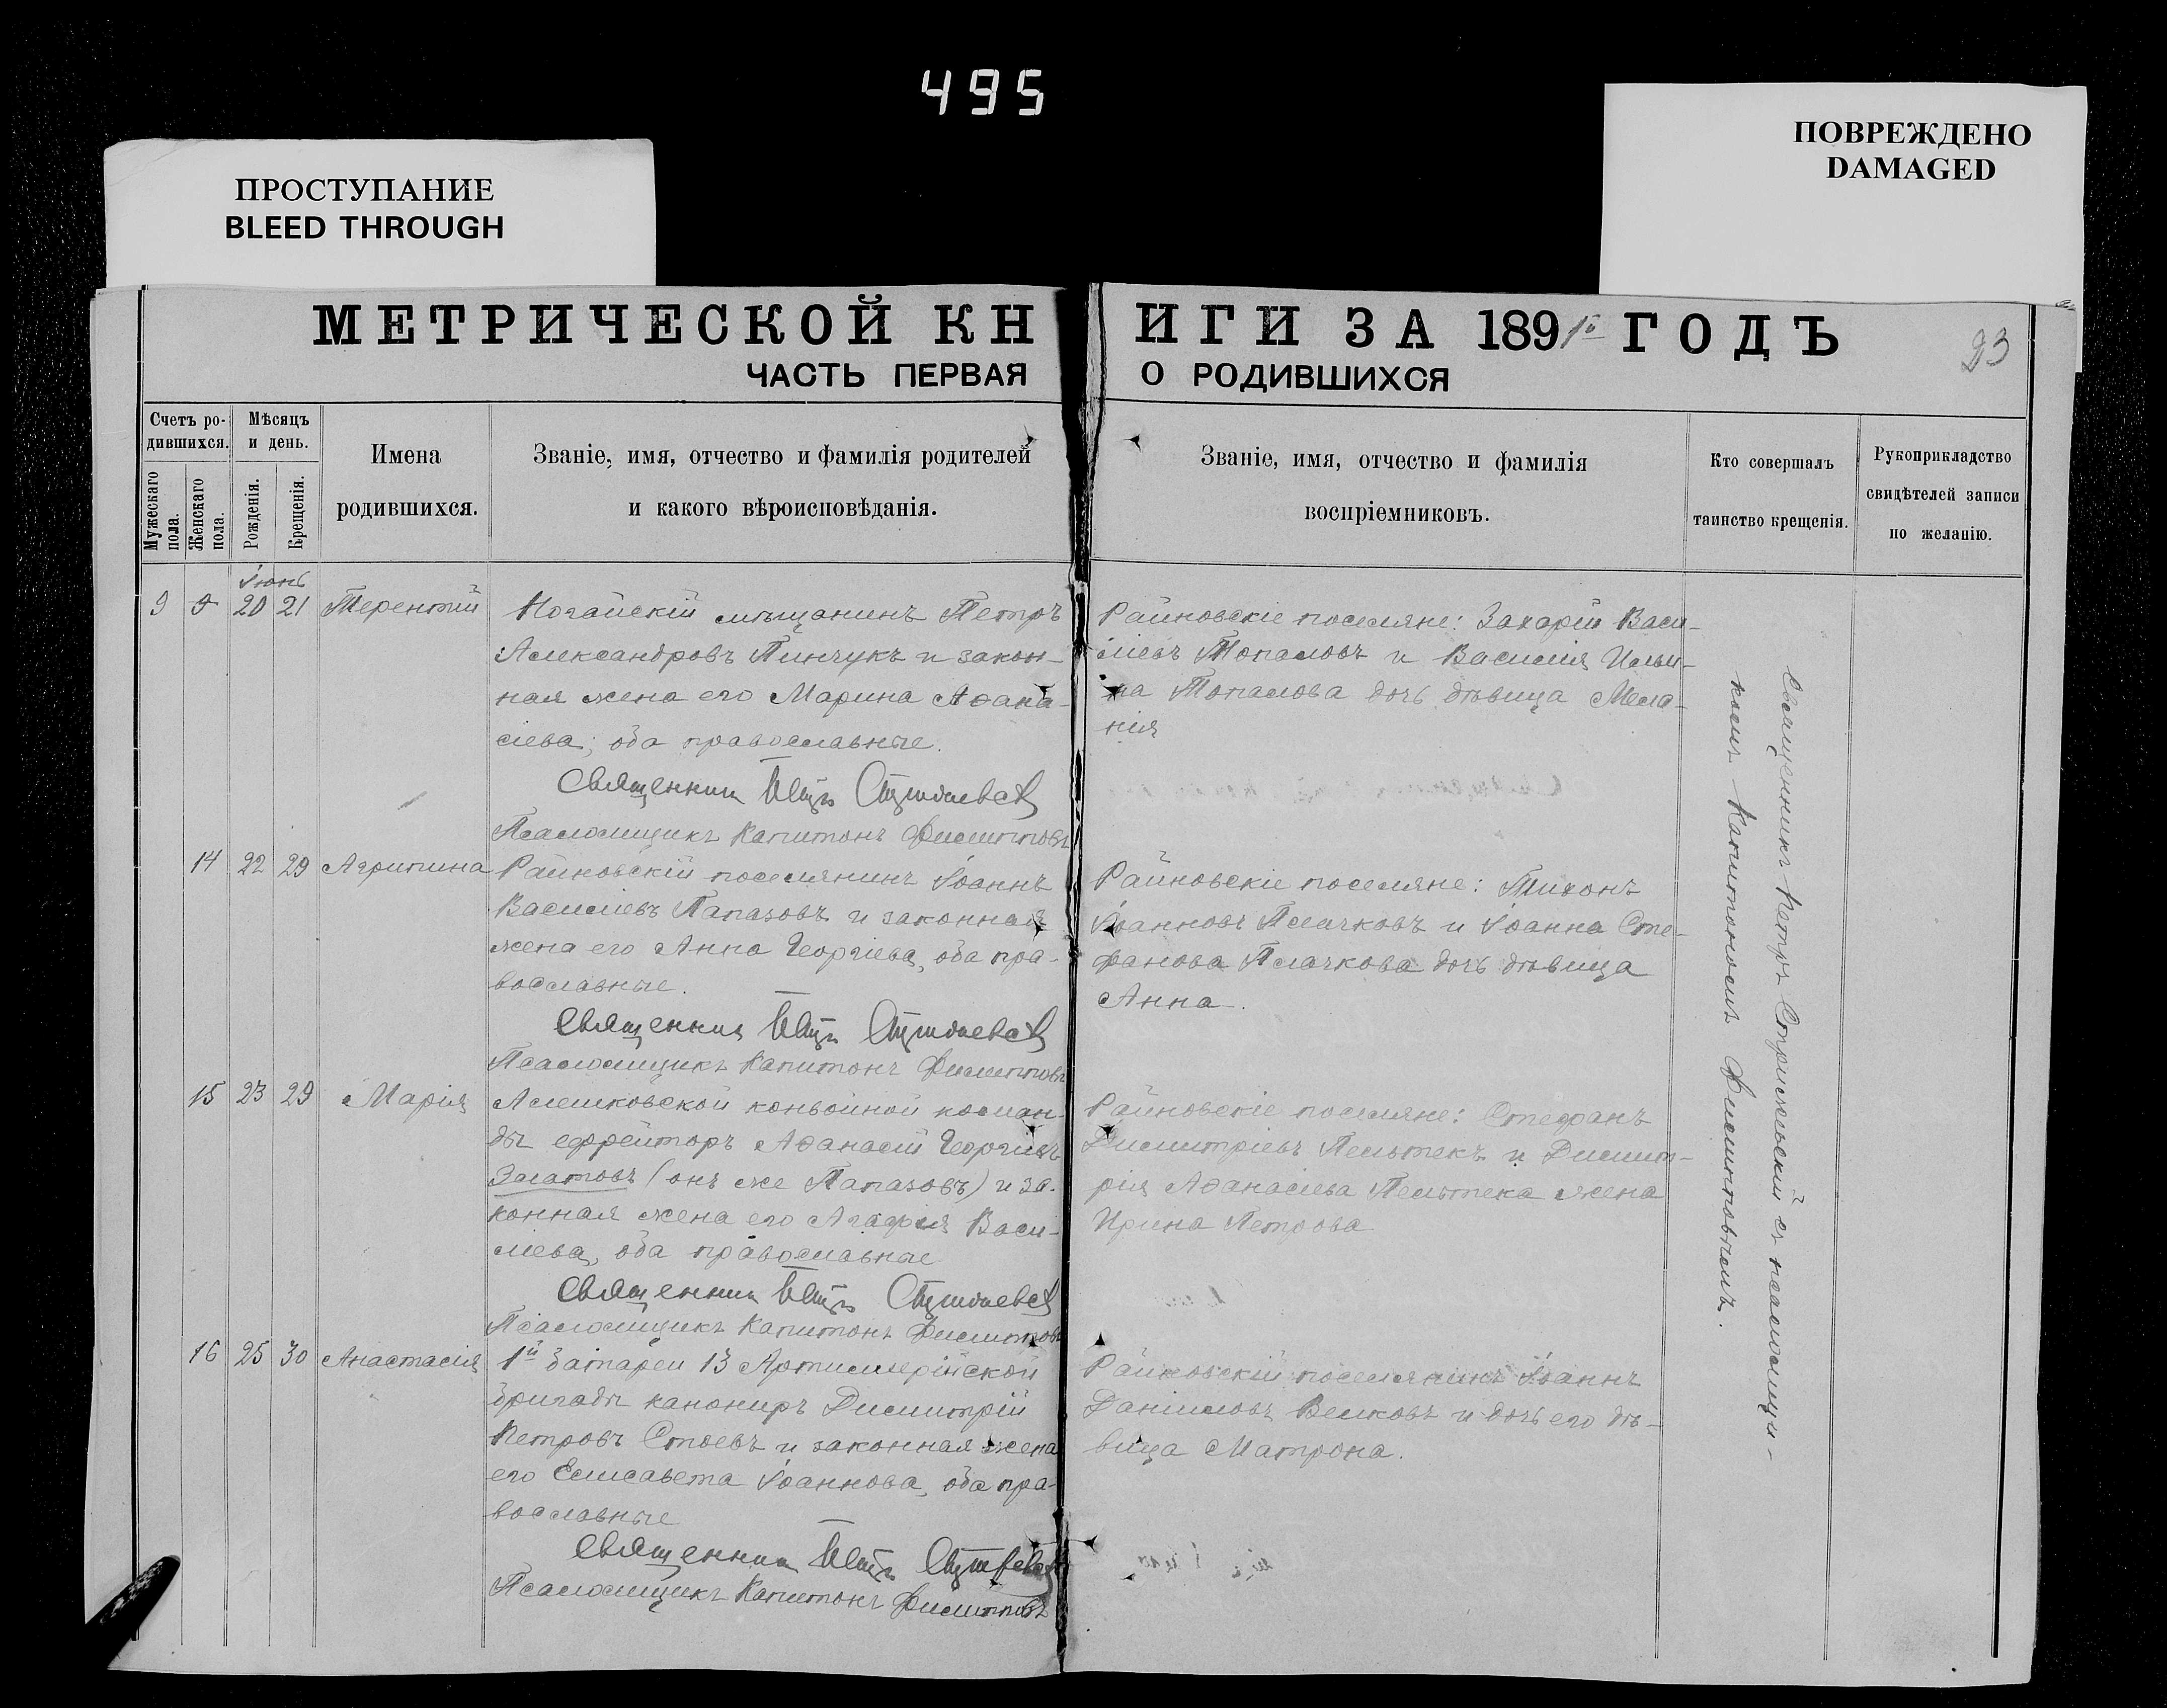 495
ПРОСТУПАНИЕ
BLEED THROUGH
ПОВРЕЖДЕНО
DAMAGED
МЕТРИЧЕСКОЙ КНИГИ ЗА 1891й ГОДЪ
23
ЧАСТЬ ПЕРВАЯ О РОДИВШИХСЯ
Счетъ родившихся.
Мужескаго пола.
Женскаго пола.
Мѣсяцъ и день.
Рожденія.
Крещенія.
Имена
родившихся.
Званіе, имя, отчество и фамилія родителей
и какого вѣроисповѣданія.
Званіе, имя, отчество и фамилія
воспріемниковъ.
Кто совершалъ
таинство крещенія.
Рукоприкладство
свидѣтелей записи
по желанію.
Іюнь
9 20 21 Терентій
Ногайскій мѣщанинъ Петръ
Александровъ Пинчукъ и закон-
ная жена его Марина Аѳана-
сіева; оба православные.
Священникъ Петръ
Псаломщикъ Капитонъ Филипповъ
Райновскіе поселяне: Захарій Васи-
ліевъ Топаловъ и Василія Ильи-
на Топалова дочь дѣвица Мела-
нія
14 22 29 Агрипина
Райновскій поселянинъ Іоаннъ
Василіевъ Папазовъ и законная
жена его Анна Георгіева, оба пра-
вославные.
Священникъ Петръ
Псаломщикъ Капитонъ Филипповъ
Райновскіе поселяне: Тихонъ
Іоанновъ Плачковъ и Іоанна Сте-
фанова Плачкова дочь дѣвица
Анна.
15 23 29 Марія
Алешковской конвойной коман-
ды ефрейторъ Аѳанасій Георгіевъ
Златовъ (онъ же Папазовъ) и за-
конная жена его Агафія Васи-
лиева, оба православные
Священникъ Петръ
Псаломщикъ Капитонъ Филипповъ
Райновскіе поселяне: Стефанъ
Димитріевъ Пельтекъ и Димит-
рія Аѳанасіева Пельтека жена
Ирина Петрова
16 25 30 Анастасія
1й батареи 13 Артиллерійской
бригады канониръ Димитрій
Петровъ Стоевъ и законная жена
его Елисавета Іоаннова, оба пра-
вославные
Священникъ Петръ
Псаломщикъ Капитонъ Филипповъ
Райновскій поселянинъ Іоаннъ
Даніиловъ Велковъ и дочь его дѣ-
вица Матрона.
Священникъ Петръ съ псаломщи-
комъ Капитономъ Филипповымъ.